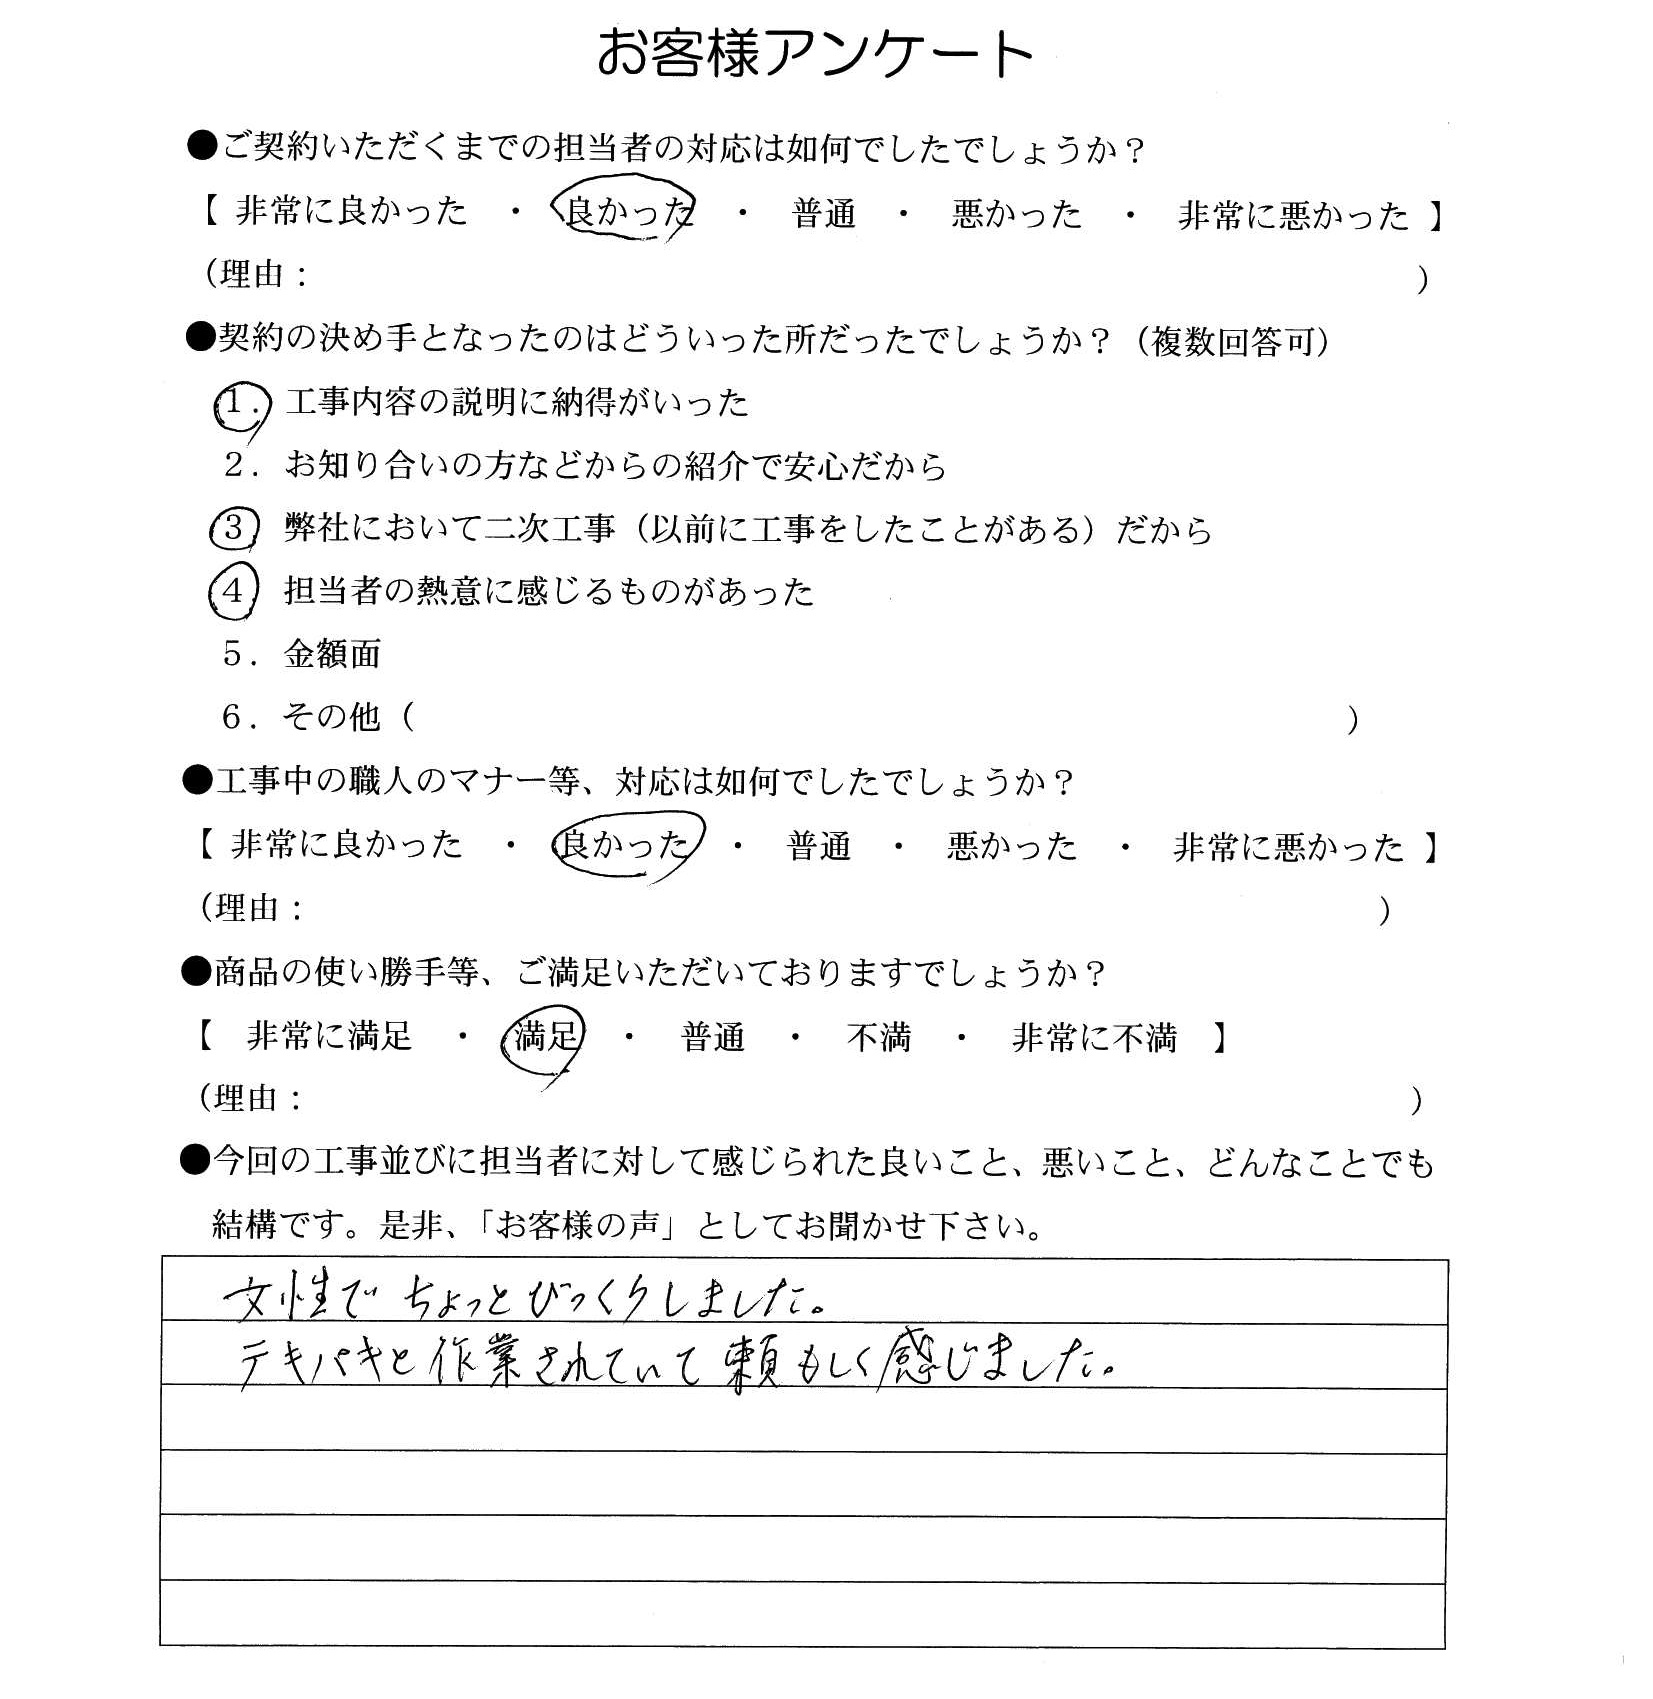 お客様アンケート
●ご契約いただくまでの担当者の対応は如何でしたでしょうか？
【 非常に良かった ・ 良かった ・ 普通 ・ 悪かった ・ 非常に悪かった 】
（理由： ）
●契約の決め手となったのはどういった所だったでしょうか？（複数回答可）
１．工事内容の説明に納得がいった
２．お知り合いの方などからの紹介で安心だから
３ 弊社において二次工事（以前に工事をしたことがある）だから
４ 担当者の熱意に感じるものがあった
５．金額面
６．その他（ ）
●工事中の職人のマナー等、対応は如何でしたでしょうか？
【 非常に良かった ・ 良かった ・ 普通 ・ 悪かった ・ 非常に悪かった 】
（理由： ）
●商品の使い勝手等、ご満足いただいておりますでしょうか？
【 非常に満足 ・ 満足 ・ 普通 ・ 不満 ・ 非常に不満 】
（理由： ）
●今回の工事並びに担当者に対して感じられた良いこと、悪いこと、どんなことでも
結構です。是非、「お客様の声」としてお聞かせ下さい。
女性で ちょっとびっくりしました。
テキパキと作業されていて頼もしく感じました。